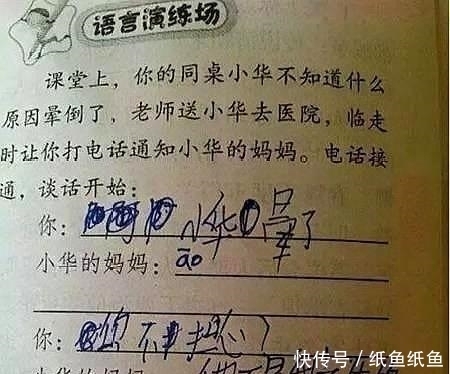 语言演练场
课堂上,你的同桌小华不知道什么
原因晕倒了,老师送小华去医院,临走
时让你打电话通知小华的妈妈。电话接
通,谈话开始:
你: 小华晕了
小华的妈妈: āo
你: 您不担心?
小华的妈妈:
快传号/纸鱼纸鱼